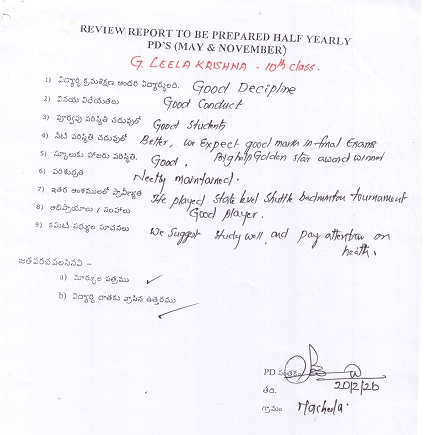 REVIEW REPORT TO BE PREPARED HALF YEARLY
PD'S (MAY & NOVEMBER)
G. LEELA KRISHNA - 10th class.
1) విద్యార్థి క్రమశిక్షణ అందరి విద్యార్థులది. Good Decipline
2) వినయ విధేయతలు Good Conduct
3) పూర్వపు పరిస్థితి చదువులో Good Students
4) నేటి పరిస్థితి చదువులో Better, we Expect good marks in final Exams
5) స్కూలుకు హాజరు పరిస్థితి. Good. Golden star award winner
6) పరిశుభ్రత Neetly maintained.
7) ఇతర అంశములలో ప్రావీణ్యత He played State level Shuttle badminton tournament
8) అభిప్రాయాలు / సలహాలు Good player.
9) కమిటీ సభ్యుల సూచనలు We Suggest Study well and pay attention on
health.
జతపరచవలసినవి –
a) మార్కుల పత్రము
b) విద్యార్థి దాతకు వ్రాసిన ఉత్తరము
PD సంతకం
తేది. 20/2/20
గ్రామం Macherla